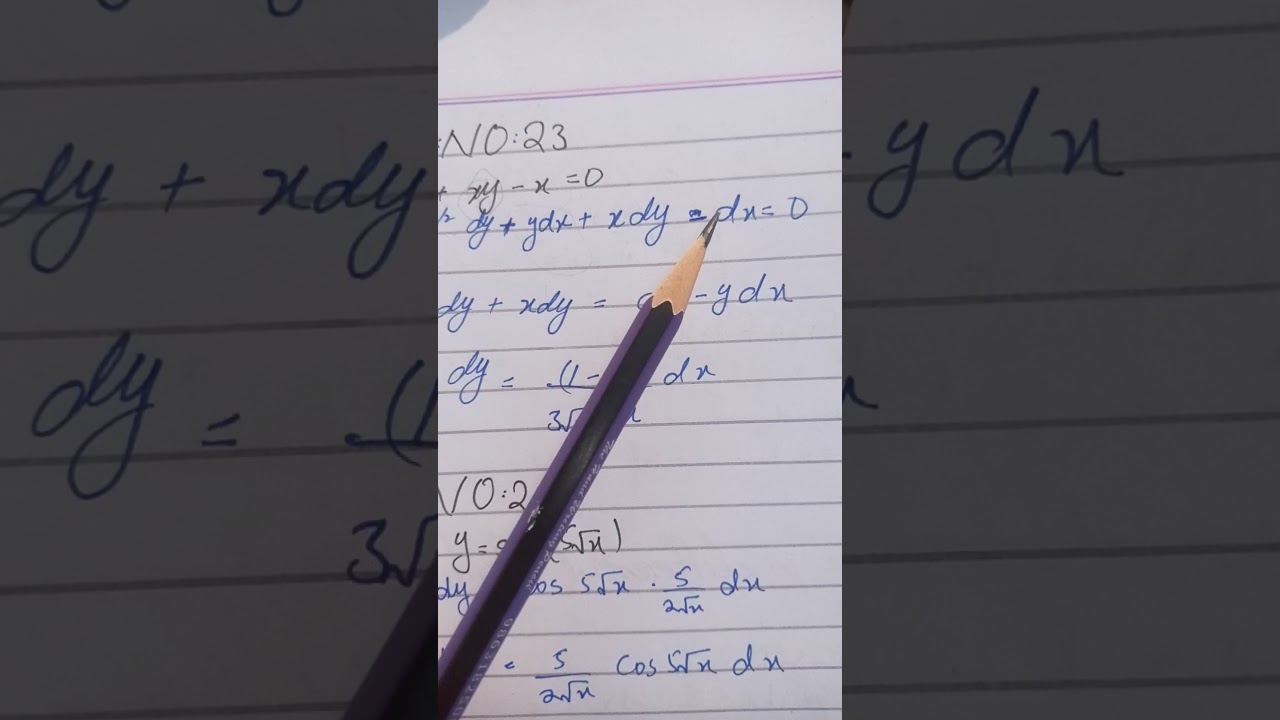 NO:23
+ xy - x = 0
1/2 dy + ydx + xdy - dx = 0
dy + xdy = - ydx
dy = (1- dx
3√
NO:2
y = 5√x)
dy cos 5√x . 5/2√x dx
= 5/2√x cos 5√x dx